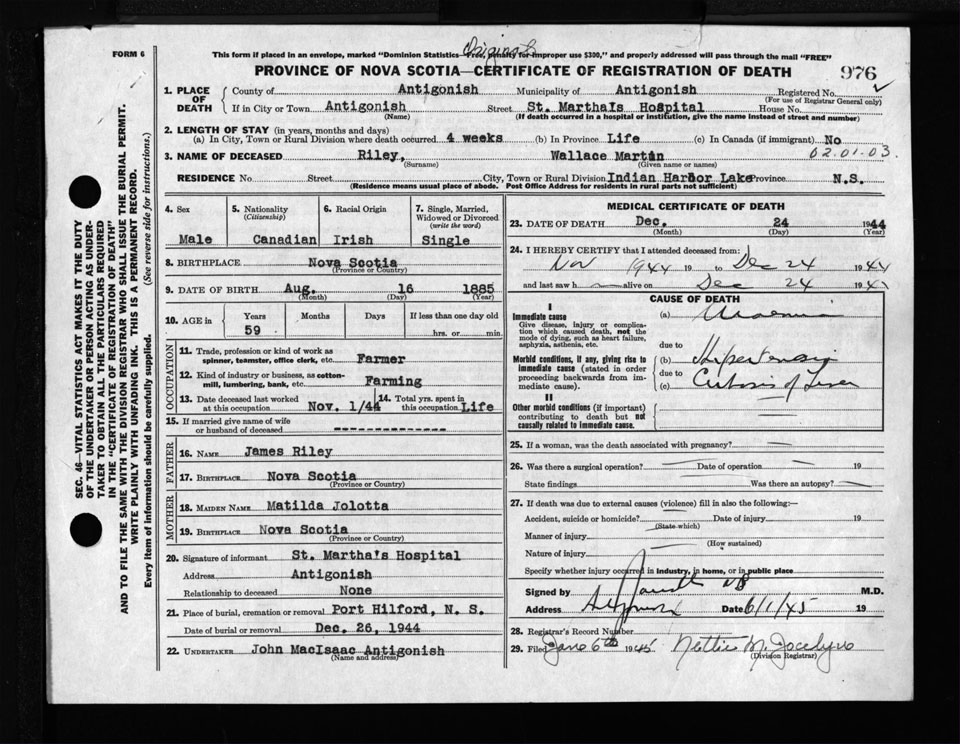 Original
FORM 6
This form if placed in an envelope, marked "Dominion Statistics—Free, penalty for improper use $300," and properly addressed will pass through the mail "FREE"
PROVINCE OF NOVA SCOTIA—CERTIFICATE OF REGISTRATION OF DEATH
976
1. PLACE OF DEATH County of Antigonish Municipality of Antigonish Registered No.
(For use of Registrar General only)
If in City or Town Antigonish Street St. Martha's Hospital House No.
(Name) (If death occurred in a hospital or institution, give the name instead of street and number)
2. LENGTH OF STAY (in years, months and days)
(a) In City, Town or Rural Division where death occurred 4 weeks (b) In Province Life (c) In Canada (if immigrant) No
3. NAME OF DECEASED Riley, Wallace Martin 02.01.03.
(Surname) (Given name or names)
RESIDENCE No Street City, Town or Rural Division Indian Harbor Lake Province N.S.
(Residence means usual place of abode. Post Office Address for residents in rural parts not sufficient)
4. Sex Male
5. Nationality (Citizenship) Canadian
6. Racial Origin Irish
7. Single, Married, Widowed or Divorced (write the word) Single
8. BIRTHPLACE Nova Scotia
(Province or Country)
9. DATE OF BIRTH Aug. 16 1885
(Month) (Day) (Year)
10. AGE in Years 59 Months Days If less than one day old
hrs. or min.
OCCUPATION
11. Trade, profession or kind of work as spinner, teamster, office clerk, etc. Farmer
12. Kind of industry or business, as cotton-mill, lumbering, bank, etc. Farming
13. Date deceased last worked at this occupation Nov. 1/44 14. Total yrs. spent in this occupation Life
15. If married give name of wife or husband of deceased --------------
FATHER
16. NAME James Riley
17. BIRTHPLACE Nova Scotia
(Province or Country)
MOTHER
18. MAIDEN NAME Matilda Jolotta
19. BIRTHPLACE Nova Scotia
(Province or Country)
20. Signature of informant St. Martha's Hospital
Address Antigonish
Relationship to deceased None
21. Place of burial, cremation or removal Port Hilford, N. S.
Date of burial or removal Dec. 26, 1944
22. UNDERTAKER John MacIsaac Antigonish
(Name and address)
MEDICAL CERTIFICATE OF DEATH
23. DATE OF DEATH Dec. 24 1944
(Month) (Day) (Year)
24. I HEREBY CERTIFY that I attended deceased from:
Nov 1944 19 to Dec 24 1944
and last saw h alive on Dec 24 194
CAUSE OF DEATH
I
Immediate cause (a) Uraemia
Give disease, injury or complication which caused death, not the mode of dying, such as heart failure, asphyxia, asthenia, etc.
due to
Morbid conditions, if any, giving rise to immediate cause (stated in order proceeding backwards from immediate cause).
(b)
due to
(c) Cirrhosis of Liver
II
Other morbid conditions (if important) contributing to death but not causally related to immediate cause.
25. If a woman, was the death associated with pregnancy?
26. Was there a surgical operation? Date of operation 19
State findings Was there an autopsy?
27. If death was due to external causes (violence) fill in also the following:—
Accident, suicide or homicide? Date of injury 19
(State which)
Manner of injury
(How sustained)
Nature of injury
Specify whether injury occurred in industry, in home, or in public place
Signed by M.D.
Address Antigonish Date 6/1/45 19
28. Registrar's Record Number
29. Filed Jany 6th 1945 Nettie M. Jocelyn
(Division Registrar)
SEC. 46—VITAL STATISTICS ACT MAKES IT THE DUTY
OF THE UNDERTAKER OR PERSON ACTING AS UNDER-
TAKER TO OBTAIN ALL THE PARTICULARS REQUIRED
IN THE "CERTIFICATE OF REGISTRATION OF DEATH"
AND TO FILE THE SAME WITH THE DIVISION REGISTRAR WHO SHALL ISSUE THE BURIAL PERMIT.
WRITE PLAINLY WITH UNFADING INK. THIS IS A PERMANENT RECORD.
Every item of information should be carefully supplied. (See reverse side for instructions.)